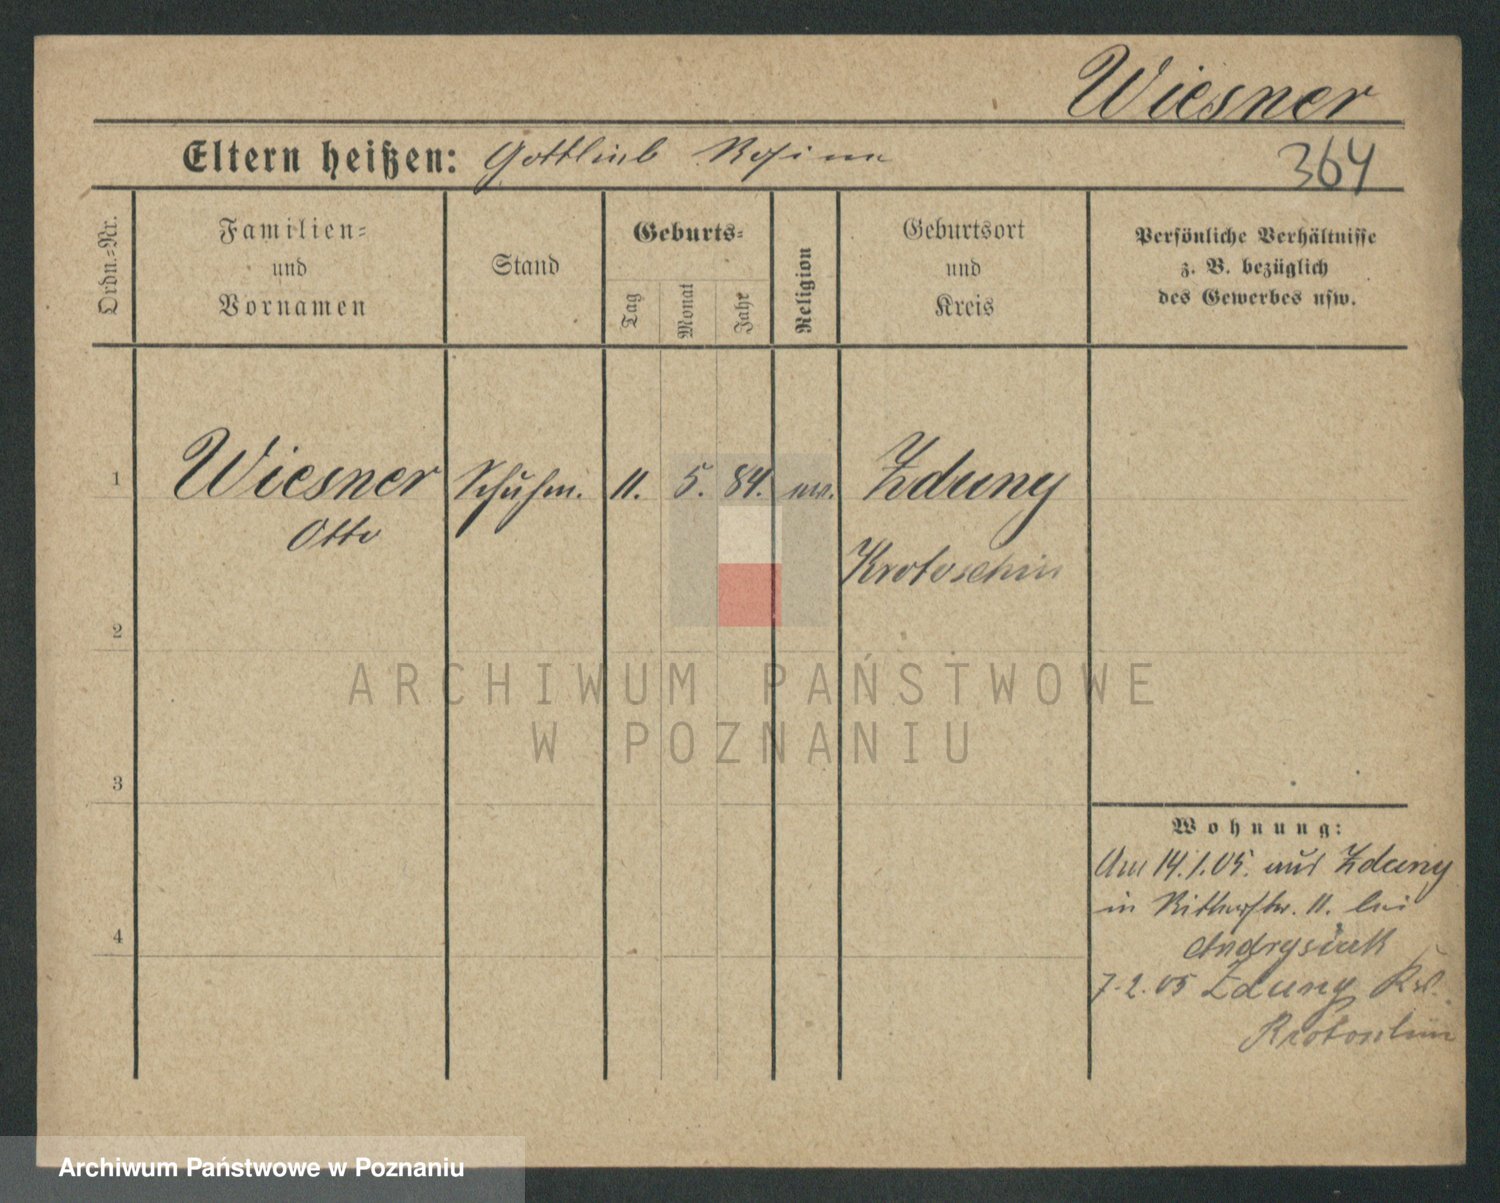 Wiesner
Eltern heißen: Gottlieb Rosina
364
Ordn.-Nr.
Familien-
und
Vornamen
Stand
Geburts-
Tag
Monat
Jahr
Religion
Geburtsort
und
Kreis
Persönliche Verhältnisse
z. B. bezüglich
des Gewerbes usw.
1
Wiesner Schuhm. 11. 5. 84. ev. Zduny
Otto
Krotoschin
2
ARCHIWUM PAŃSTWOWE
W POZNANIU
3
Wohnung:
Am 14.1.05. aus Zduny
in Ritterstr. 11. bei
Andrysiak
4
7.2.05 Zduny Kr.
Krotoschin
Archiwum Państwowe w Poznaniu